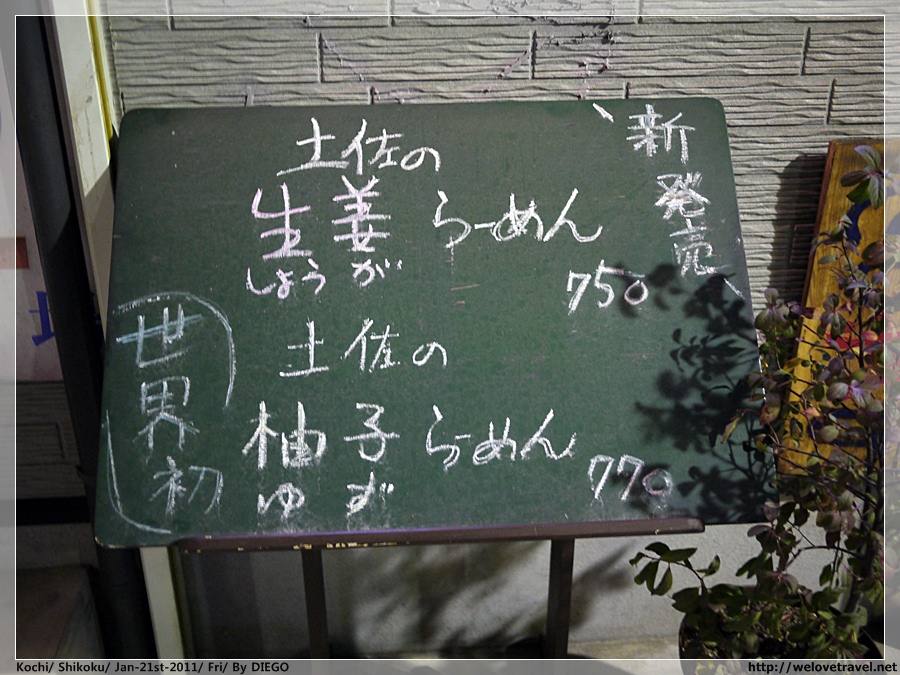 新発売
土佐の
生姜らーめん
しょうが
750
土佐の
柚子らーめん
ゆず
770
世界初
Kochi/ Shikoku/ Jan-21st-2011/ Fri/ By DIEGO
http://welovetravel.net